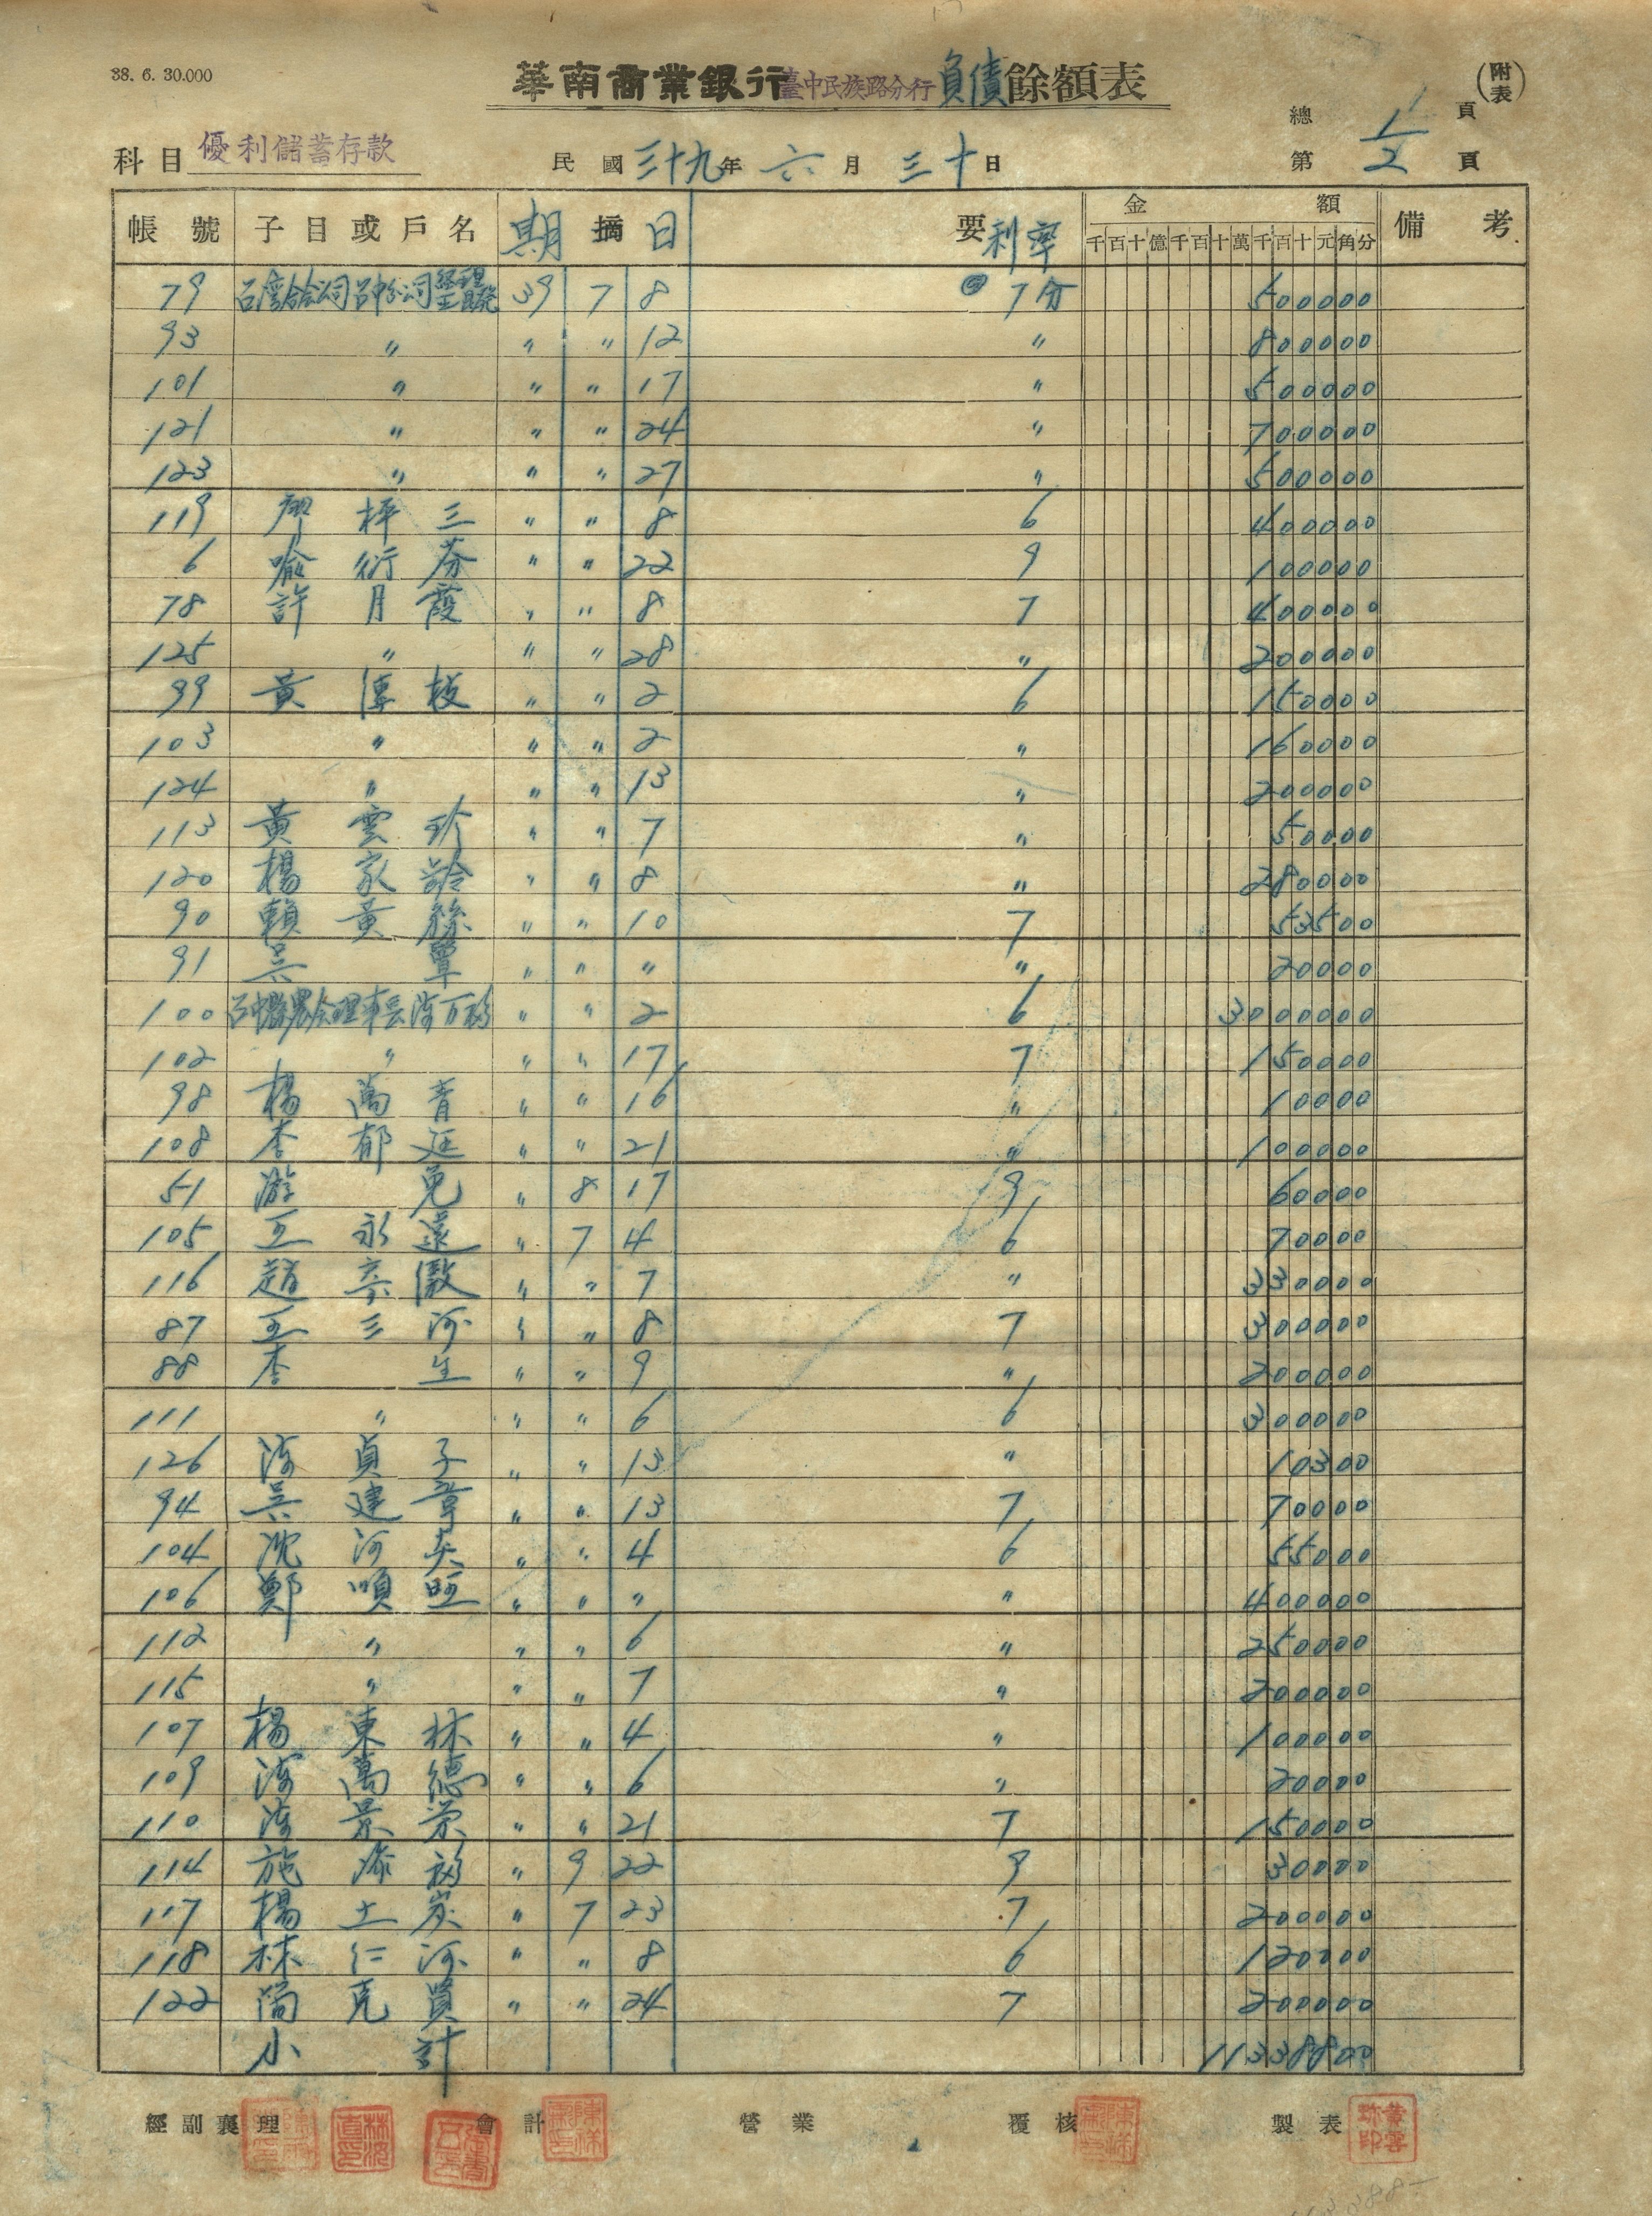 38. 6. 30.000
華南商業銀行臺中民族路分行負債餘額表
(附表)
總 1 頁
科目 優利儲蓄存款 民國三十九年六月三十日 第 2 頁
帳號 子目或戶名 期 摘 日 要 利率 金額 備考
千百十億千百十萬千百十元角分
79 39 7 8 @ 7分 500000
93 〃 〃 〃 12 〃 800000
101 〃 〃 〃 17 〃 500000
121 〃 〃 〃 24 〃 700000
123 〃 〃 〃 27 〃 500000
119 坪三 〃 〃 8 6 400000
6 喩衍芬 〃 〃 22 9 100000
78 許月霞 〃 〃 8 7 400000
125 〃 〃 〃 28 〃 200000
99 黃 枝 〃 〃 2 6 150000
103 〃 〃 〃 2 〃 160000
124 〃 〃 〃 13 〃 200000
113 黃雲珍 〃 〃 7 〃 50000
120 楊家齡 〃 〃 8 〃 280000
90 賴黃 〃 〃 10 7 53500
91 吳覃 〃 〃 〃 〃 20000
100 〃 〃 2 6 3000000
102 〃 〃 〃 17 7 150000
98 楊萬青 〃 〃 16 〃 10000
108 李郁廷 〃 〃 21 〃 100000
51 游兔 〃 8 17 9 60000
105 王永遠 〃 7 4 6 70000
116 趙 〃 〃 7 〃 330000
87 王三河 〃 〃 8 7 300000
88 李生 〃 〃 9 〃 200000
111 〃 〃 〃 6 6 300000
126 陳貞子 〃 〃 13 〃 10300
94 吳建章 〃 〃 13 7 70000
104 沈河 〃 〃 4 6 55000
106 鄭 〃 〃 〃 〃 400000
112 〃 〃 〃 6 〃 250000
115 〃 〃 〃 7 〃 200000
107 楊東林 〃 〃 4 〃 100000
109 陳萬德 〃 〃 6 〃 20000
110 陳景榮 〃 〃 21 7 150000
114 施添 〃 9 22 9 30000
117 楊土炭 〃 7 23 7 200000
118 林仁河 〃 〃 8 6 120000
122 克買 〃 〃 24 7 200000
小計 11338800
經副襄理 會計 營業 覆核 製表 黃雲珍印